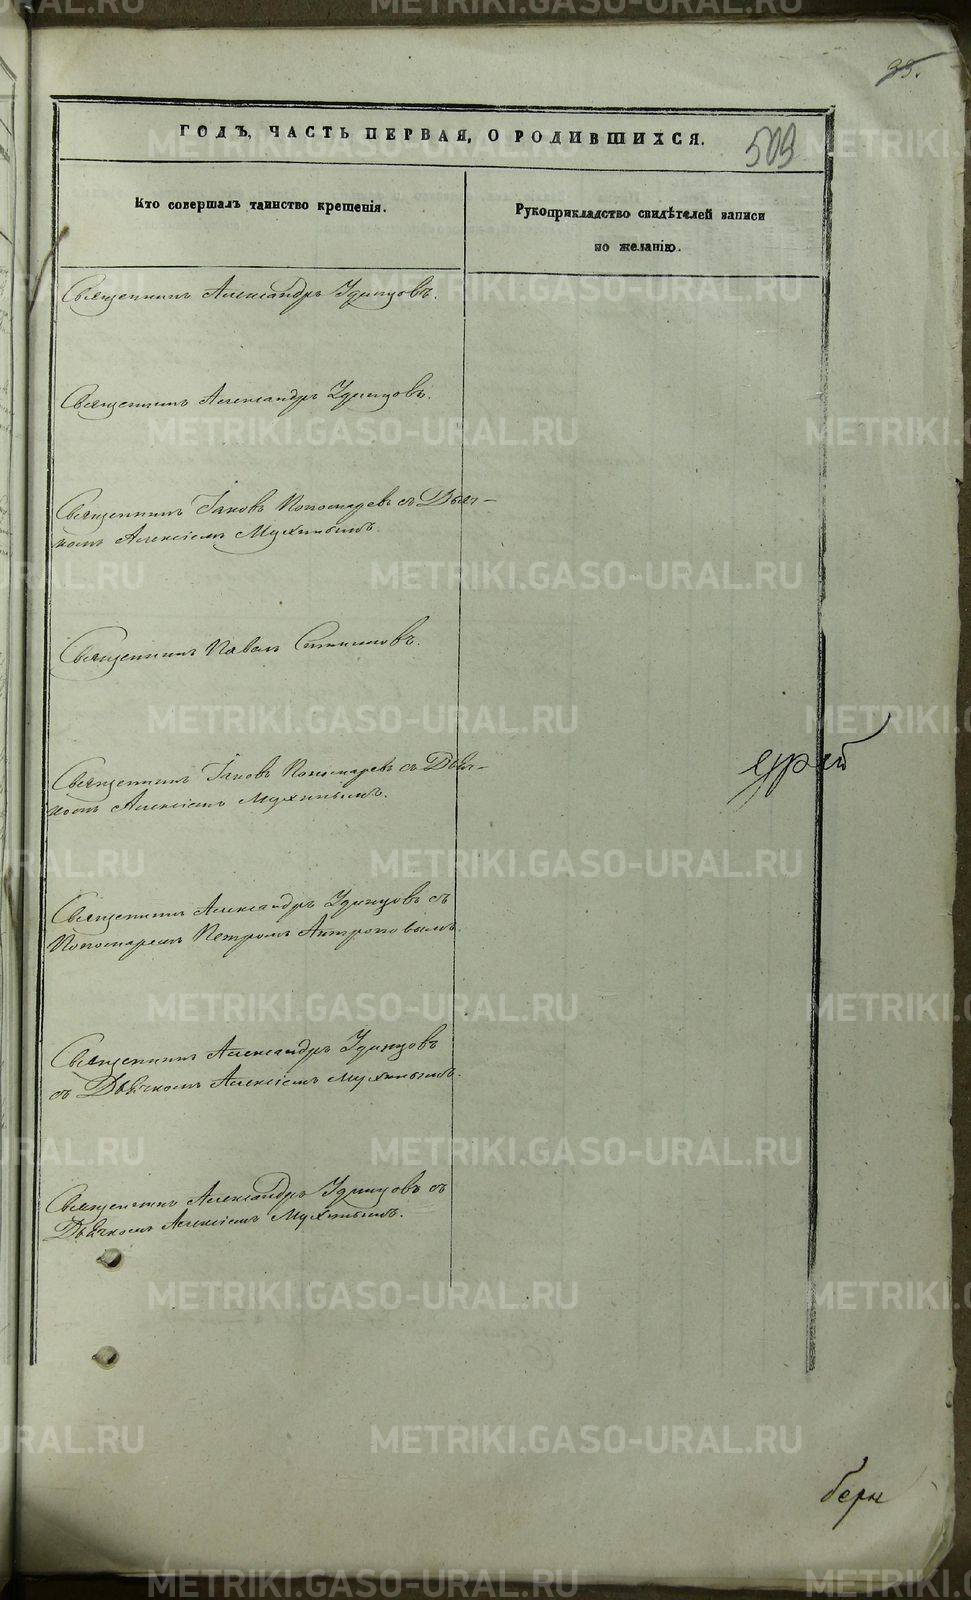 35.
ГОДЪ, ЧАСТЬ ПЕРВАЯ, О РОДИВШИХСЯ.
509
Кто совершалъ таинство крещенія.
Рукоприкладство свидѣтелей записи
по желанію.
Священникъ Александръ Удинцовъ.
Священникъ Александръ Удинцовъ.
Священникъ Іаковъ Пономаревъ съ Дьяч-
комъ Алексіемъ Мухинымъ.
Священникъ Павелъ
Священникъ Іаковъ Пономаревъ съ Дьяч-
комъ Алексіемъ Мухинымъ.
Священникъ Александръ Удинцовъ съ
Пономаремъ Петромъ Антроповымъ.
Священникъ Александръ Удинцовъ
съ Дьячкомъ Алексіемъ Мухинымъ.
Священникъ Александръ Удинцовъ съ
Дьячкомъ Алексіемъ Мухинымъ.
METRIKI.GASO-URAL.RU